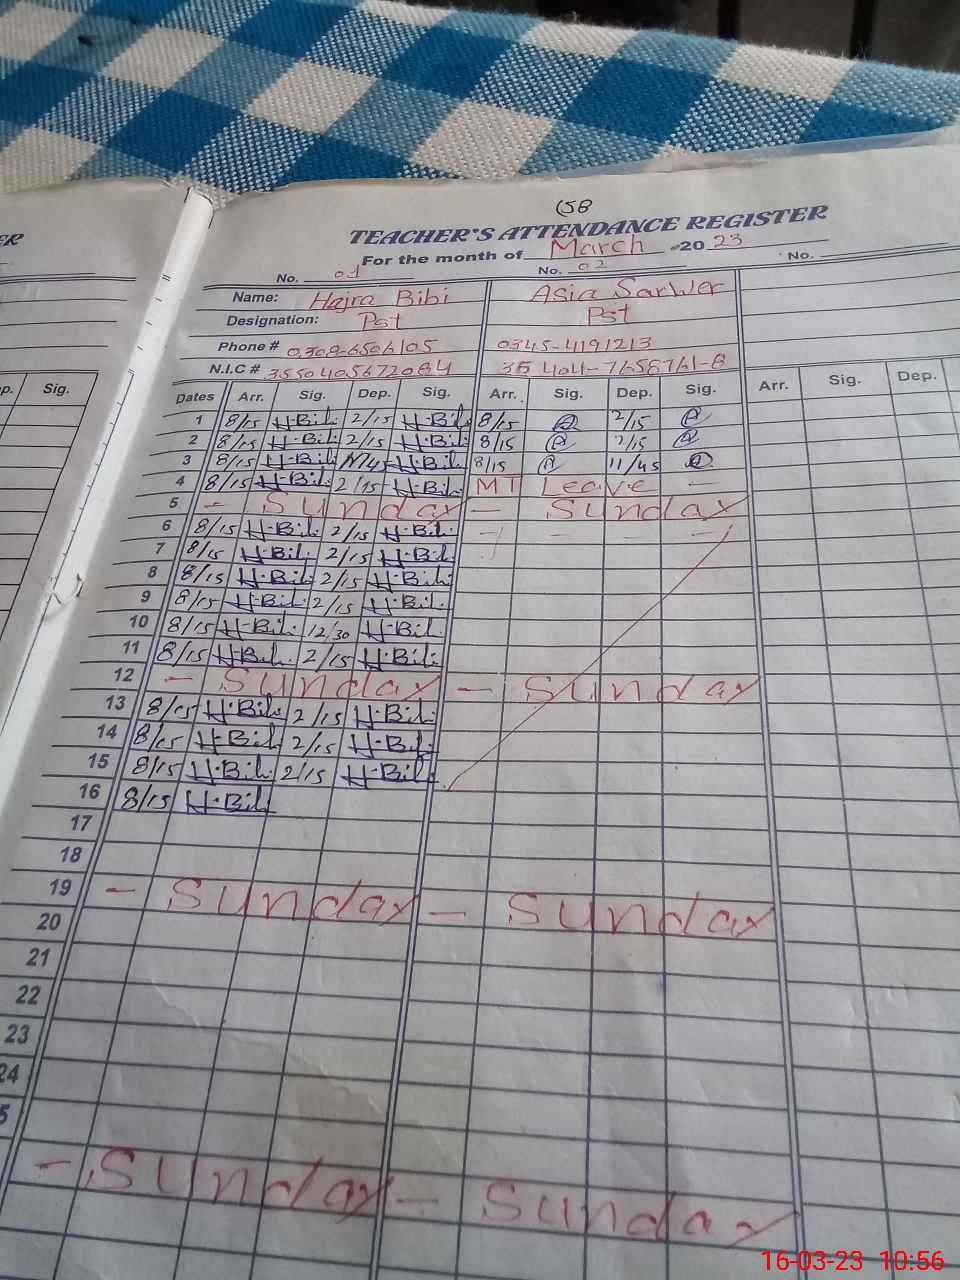 (58
TEACHER'S ATTENDANCE REGISTER
For the month of March 20 23
No. 01 No. 02 No.
Name: Hajra Bibi Asia Sarwer
Designation: Pst Pst
Phone # 0308-6506105 0345-4191213
N.I.C # 3550405672084 35404-7658761-8
Dates Arr. Sig. Dep. Sig. Arr. Sig. Dep. Sig. Arr. Sig. Dep.
p. Sig.
1 8/15 H·Bibi 2/15 H·Bibi 8/15 2/15
2 8/15 H·Bibi 2/15 H·Bibi 8/15 2/15
3 8/15 H·Bibi 11/45 H·Bibi 8/15 11/45
4 8/15 H·Bibi 2/15 H·Bibi MT Leave -
5 - Sunday - Sunday
6 8/15 H·Bibi 2/15 H·Bibi - - - -
7 8/15 H·Bibi 2/15 H·Bibi
8 8/15 H·Bibi 2/15 H·Bibi
9 8/15 H·Bibi 2/15 H·Bibi
10 8/15 H·Bibi 12/30 H·Bibi
11 8/15 H·Bibi 2/15 H·Bibi
12 - Sunday - Sunday
13 8/15 H·Bibi 2/15 H·Bibi
14 8/15 H·Bibi 2/15 H·Bibi
15 8/15 H·Bibi 2/15 H·Bibi
16 8/15 H·Bibi
17
18
19 - Sunday - Sunday
20
21
22
23
24
5
- Sunday - Sunday
16-03-23 10:56